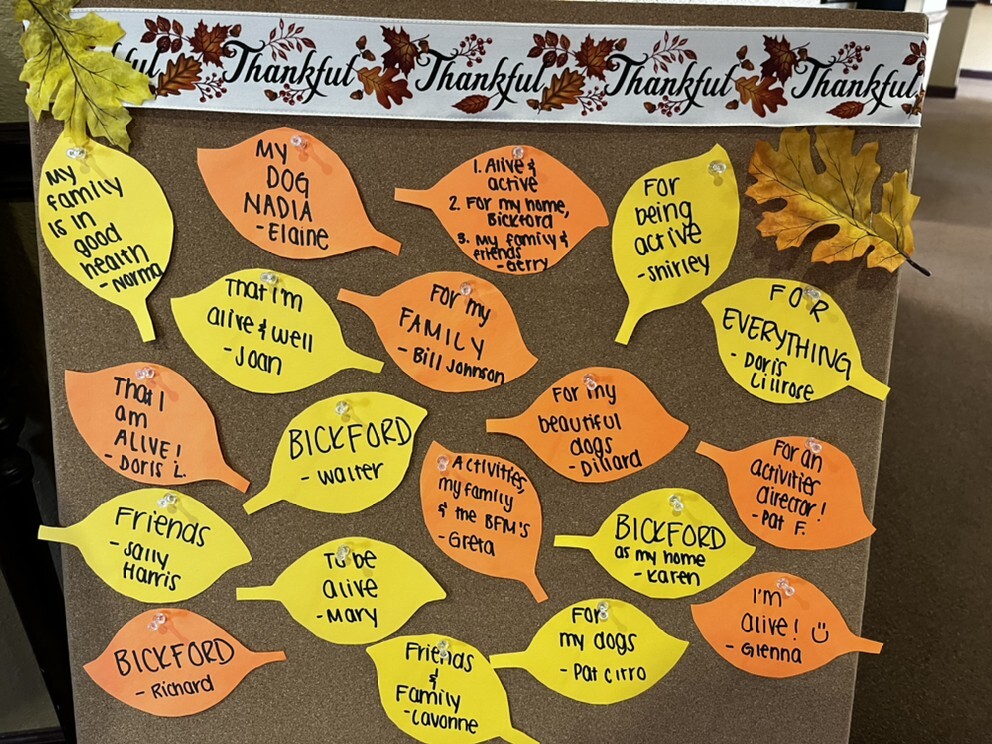 ful Thankful Thankful Thankful Thankful
My
family
is in
good
health
- Norma
MY
DOG
NADIA
- Elaine
1. Alive &
active
2. For my home,
Bickford
3. My family &
friends
- Gerry
For
being
active
- Shirley
That I'm
alive & well
- Joan
For my
FAMILY
- Bill Johnson
FOR
EVERYTHING
- Doris
Lillrose
That I
am
ALIVE!
- Doris L.
BICKFORD
- Walter
For my
beautiful
dogs
- Dillard
Activities,
my family
& the BFM's
- Greta
For an
activities
director!
- Pat F.
Friends
- Sally
Harris
To be
alive
- Mary
BICKFORD
as my home
- Karen
I'm
alive! ☺
- Glenna
BICKFORD
- Richard
Friends
&
Family
- Lavonne
For
my dogs
- Pat Cirro